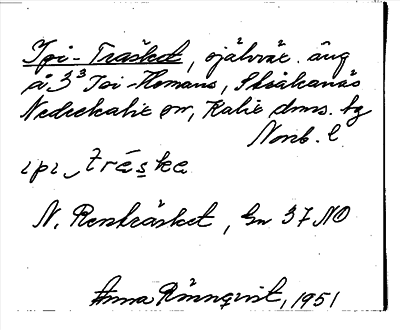 Ipi-Träsket, självväx. äng
å 3³ Ipi-Homans, Stråkanäs
Nederkalix sn, Kalix dms. tg
Norrb. l
ipi träske
N. Rensträsket, Gv 37 NO
Anna Rönnqvist, 1951